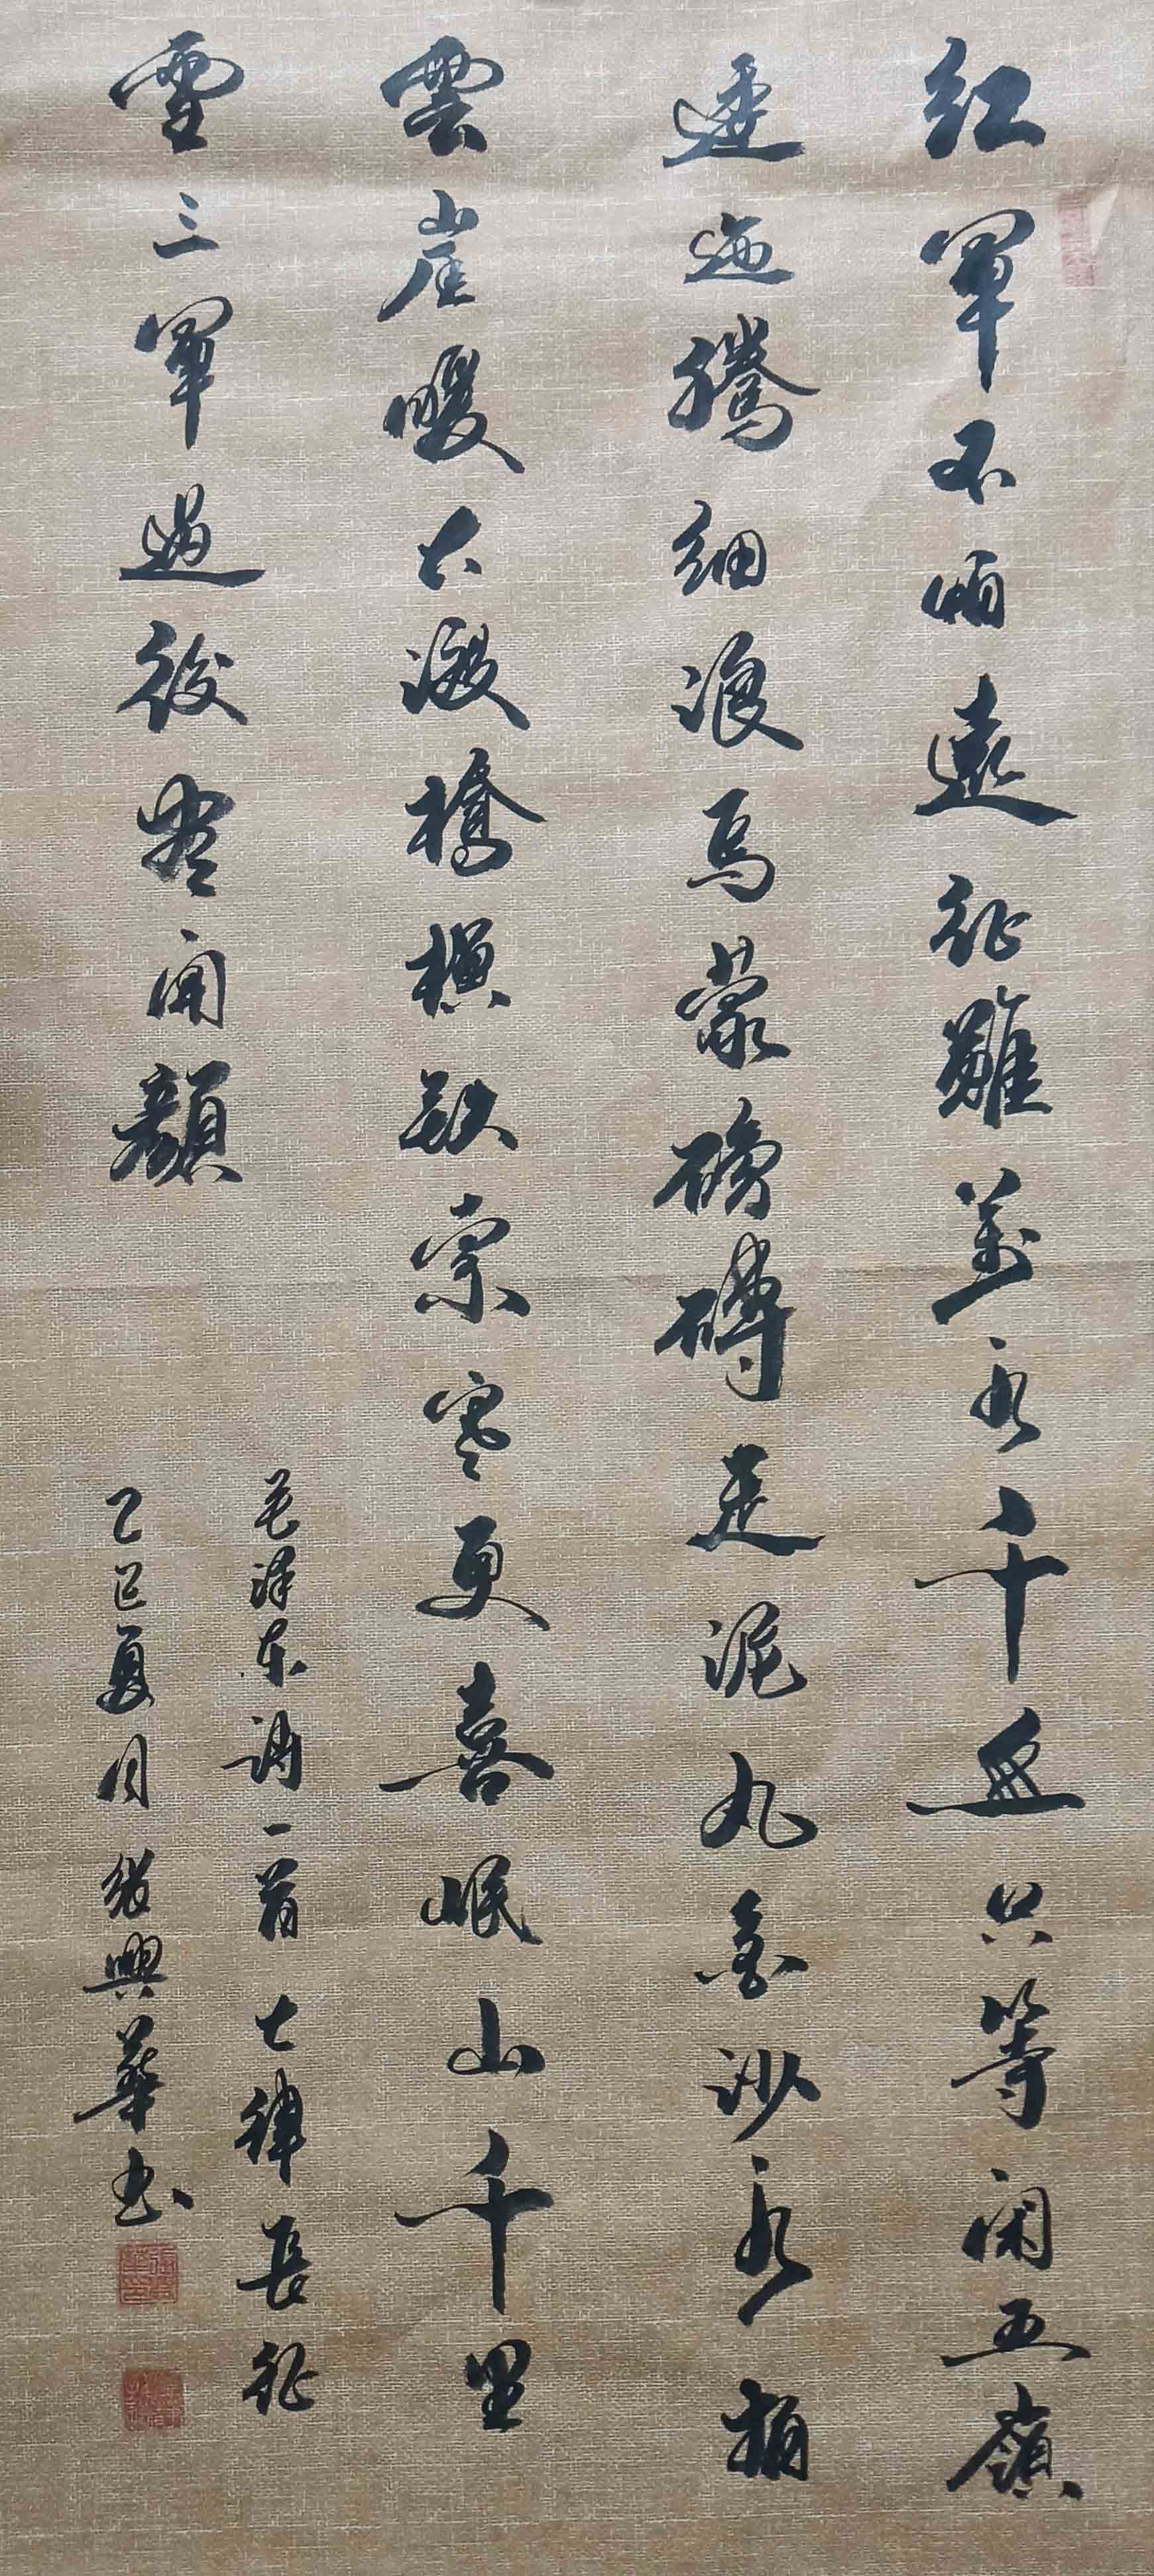 紅軍不怕遠征難萬水千只等閑五嶺
逶迤騰細浪烏蒙磅礴走泥丸金沙水拍
雲崖暖大渡橋橫鐵索寒更喜岷山千里
雪三軍過後盡開顏
毛澤东詩一首七律長征
乙巳夏月張興華书